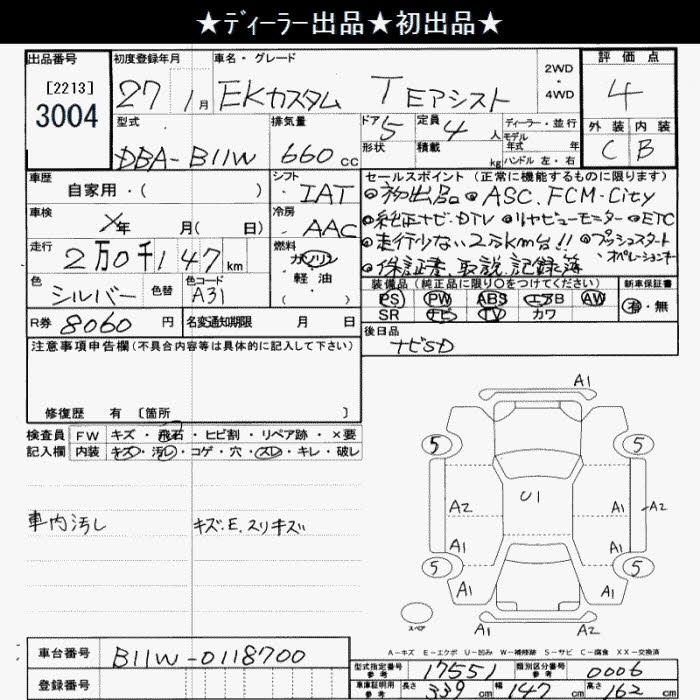 ★ディーラー出品★初出品★
出品番号 初度登録年月 車名・グレード 評価点
[2213] 27 1月 EKカスタム T Eアシスト 2WD・4WD 4
3004
型式 排気量 ドア 5 定員 4人 ディーラー・並行 外装 内装
モデル年式 年
DBA-B11W 660cc 形状 積載 kg ハンドル 左・右 C B
車歴 シフト セールスポイント (正常に機能するものに限ります)
自家用・( ) IAT ◎初出品 ◎ASC.FCM-City
車検 X年 月( 日) 冷房 AAC ◎純正ナビ.DTV ◎リヤビューモニター ◎ETC
走行 2万0千147km 燃料 ガソリン ◎走行少ない2万km台!! ◎プッシュスタート
・軽油 オペレーションキー
◎保証書、取説、記録簿
色 シルバー 色替 色コード A31 ・( ) 装備品 (純正品に限り○をつけてください) 新車保証書
PS PW ABS エアB AW 有・無
R券 8060円 名変通知期限 月 日 SR ナビ TV カワ
注意事項申告欄(不具合内容等は具体的に記入して下さい) 後日品
ナビSD
修復歴 有 〔箇所 〕
検査員 FW キズ・飛石・ヒビ割・リペア跡・×要
記入欄 内装 キズ・汚レ・コゲ・穴・スレ・キレ・破レ
A1
5 5
U1
A2 A1 A2
A1 A1
5 5
A1 A1
スペア
A1 A2
車内汚し キズ.E.スリキズ
A−キズ E−エクボ U−凹み W−補修跡 S−サビ C−腐食 XX−交換済
車台番号 B11W-0118700
登録番号
型式指定番号参考 17551 類別区分番号参考 0006
車庫証明用参考 長さ 339cm 幅 147cm 高さ 162cm